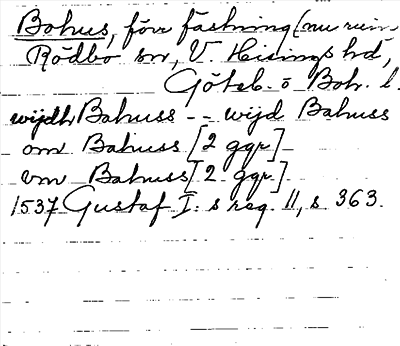 Bohus, förr fästning (nu ruin-
Rödbo sn, V. Hisings hd,
Göteb. o Boh. l.
wijdh Bahuss -- wijd Bahuss
om Bahuss [2 ggr]
vm Bahuss [2 ggr].
1537 Gustaf I:s reg. 11, s 363.